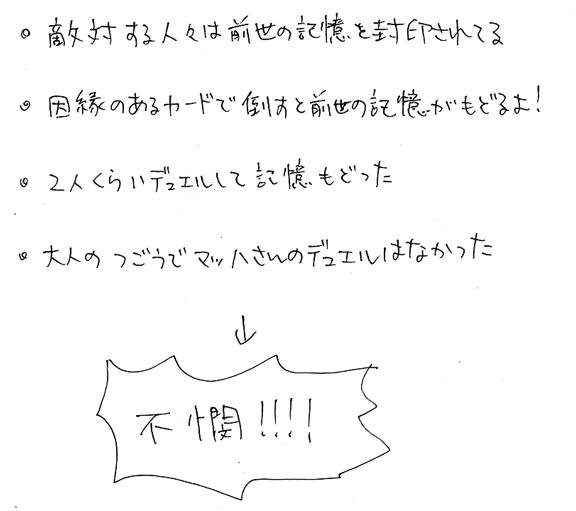 。敵対する人々は前世の記憶を封印されてる
。因縁のあるカードで倒すと前世の記憶がもどるよ!
。2人くらいデュエルして記憶もどった
。大人のつごうでマッハさんのデュエルはなかった
↓
不憫!!!!